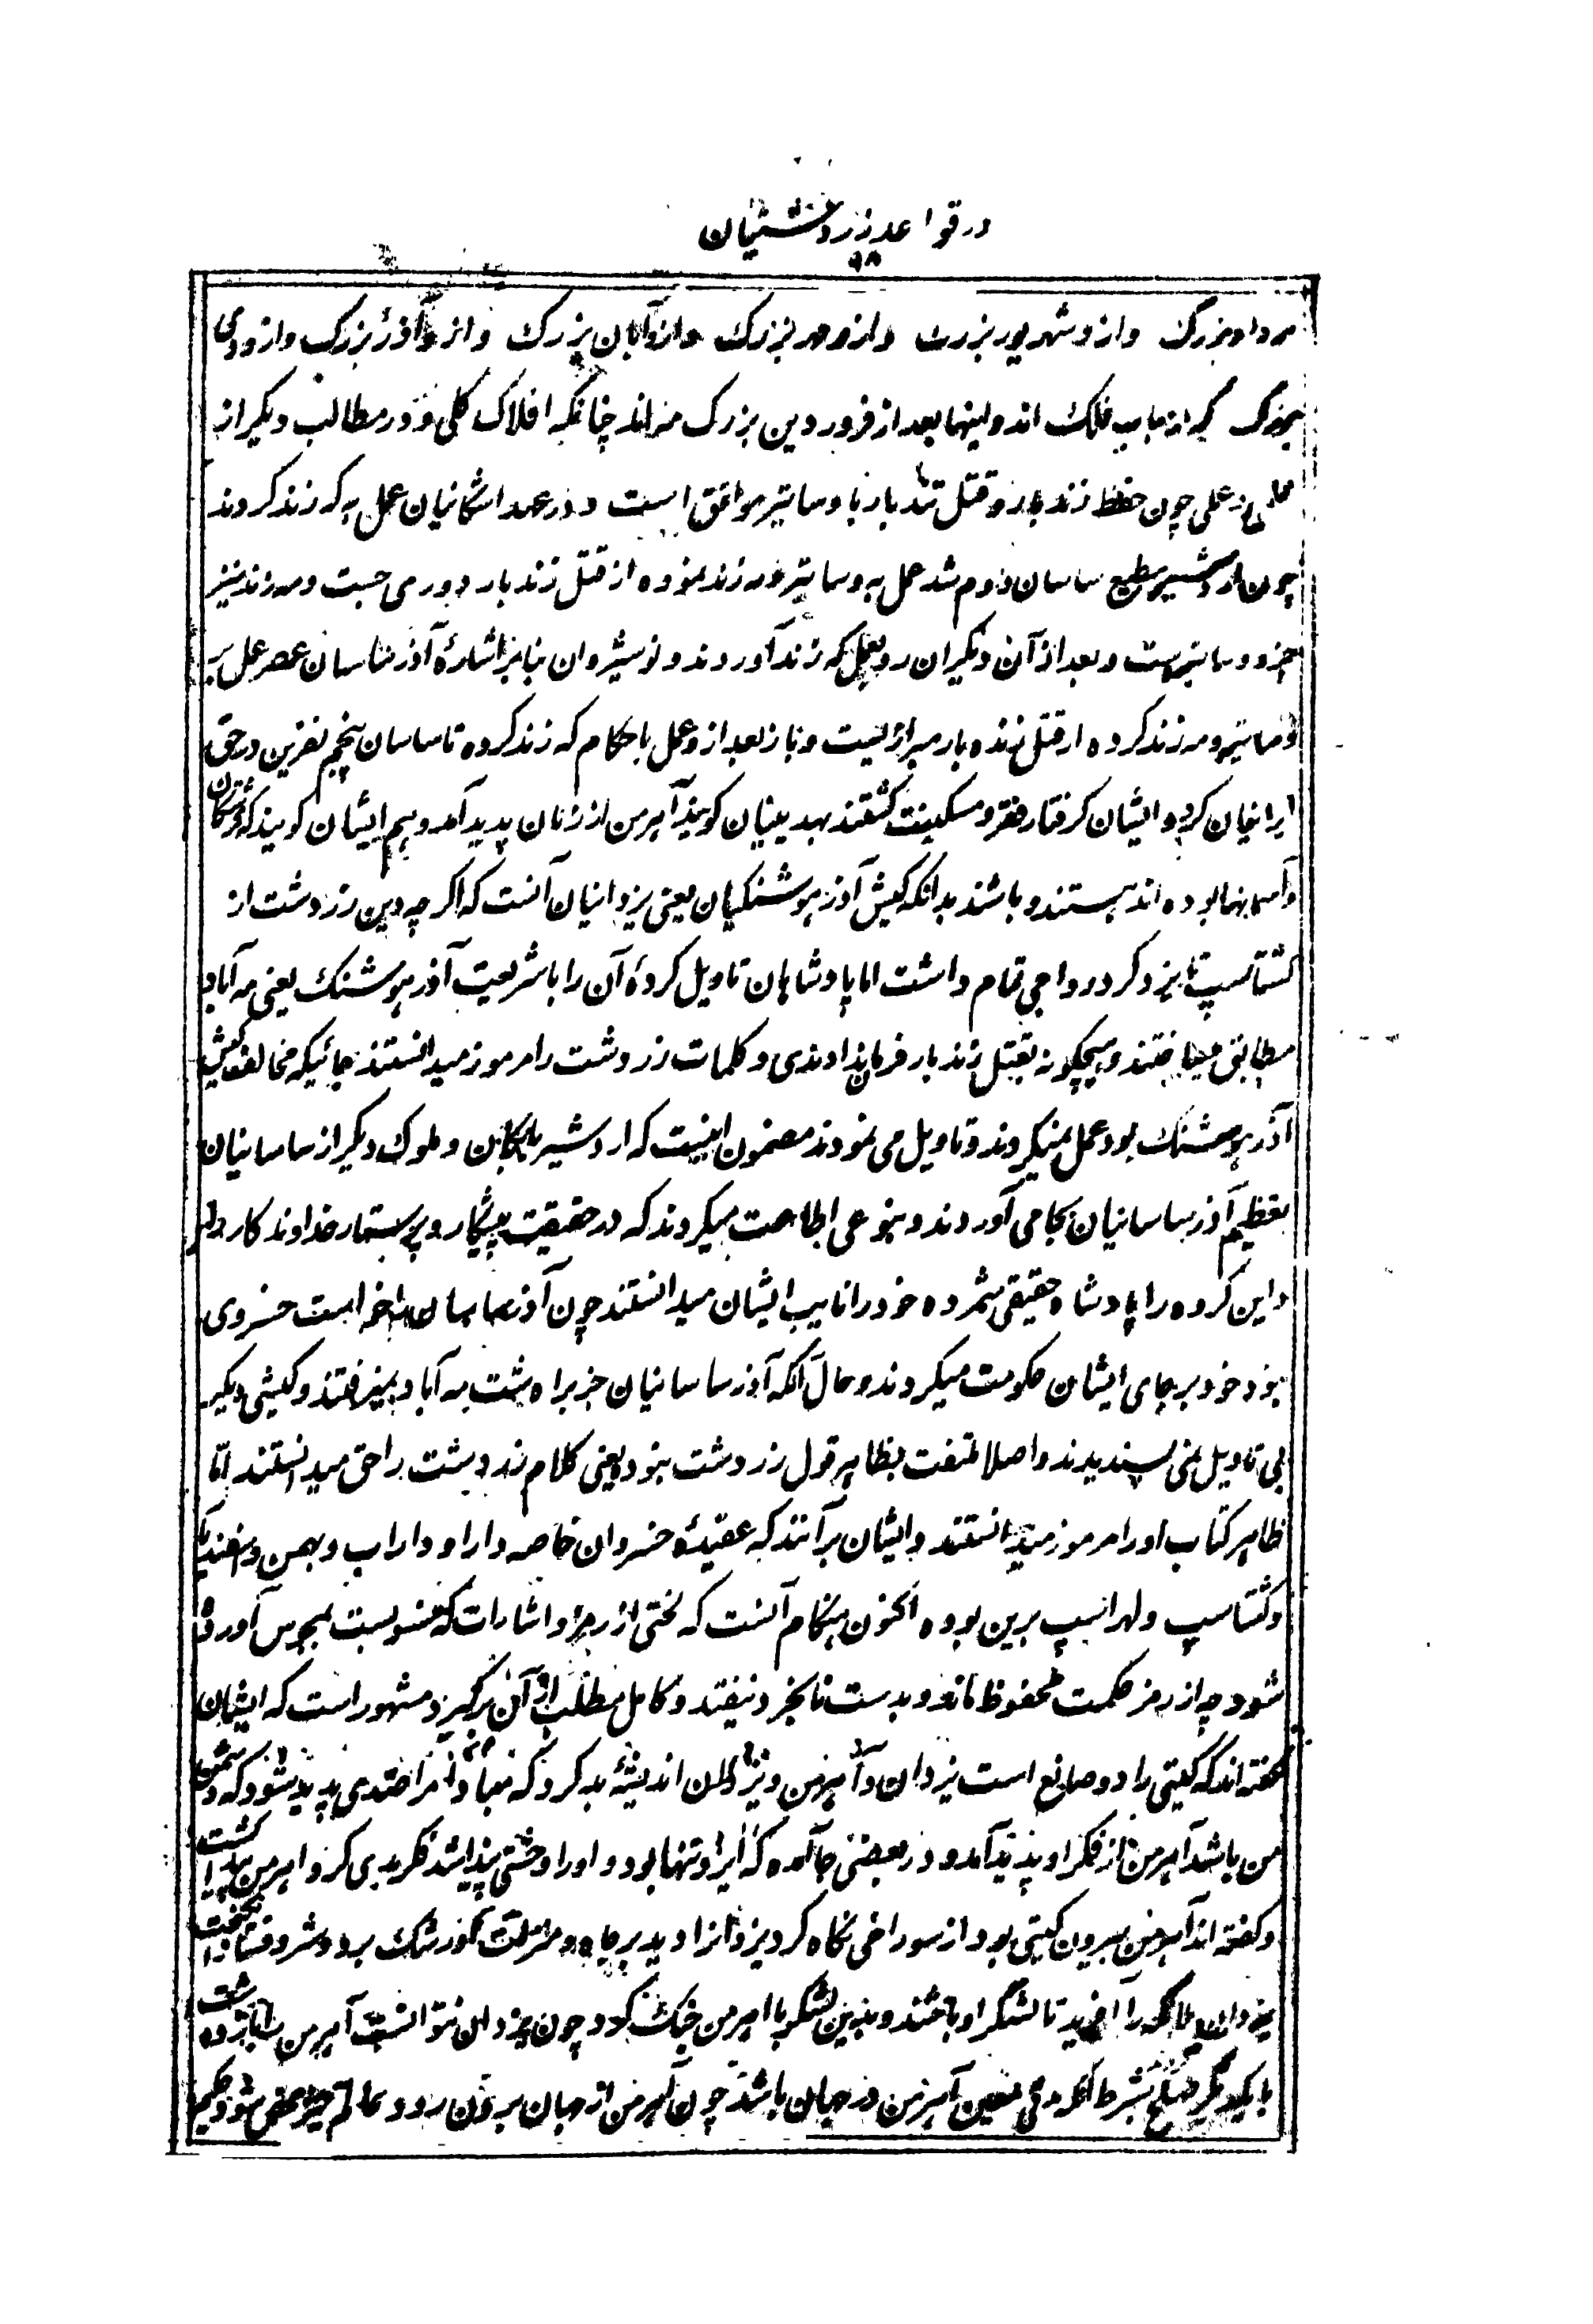 در قواعد زردشتیان
۹۸
مرداد بزرگ وازو شهریور بزرگ وازو مهر بزرگ وازو آبان بزرگ وازو آذر بزرگ وازو دی
بزرگ که ارباب فلک اند واینها بعد از فروردین بزرگ اند چنانکه افلاک کلی و در مطالب دیگر از
علمی و عملی چون حفظ زندبار و قتل تندبار با وساتیر موافق است و در عهد اشکانیان عمل به که زند کردند
چون اردشیر مطیع ساسان دوم شد عمل به وساتیر و مه زند نموده از قتل زندبار دوری جست ومه زند نیز
جزو وساتیرست و بعد از آن دیگران رو بعمل که زند آوردند و نوشیروان بنابر اشارهٔ آذر ساسان عصر عمل بر
وساتیر ومه زند کرده از قتل زنده بار مبرا زیست و باز بعد ازو عمل باحکام که زند کرده تا ساسان پنجم نفرین در حق
ایرانیان کرد و ایشان گرفتار فقر و مسکینت گشتند بهدینیان گویند آهرمن از زمان پدید آمد و هم ایشان گویند که فرشتگان
و آسمانها بوده اند و هستند و باشند بدانکه کیش آذر هوشنگیان یعنی یزدانیان آنست که اگرچه دین زردشت از
گشتاسپ تا یزدگرد رواجی تمام داشت اما پادشاهان تاویل کرده آن را با شریعت آذر هوشنگ یعنی مه آباد
مطابق میساختند و هیچگونه بقتل زندبار فرمان ندادندی و کلمات زردشت را مرموز میدانستند جائیکه مخالف کیش
آذر هوشنگ بود عمل نمیکردند و تاویل می نمودند مضمون اینست که اردشیر بابکان و ملوک دیگر از ساسانیان
تعظیم آذر ساسانیان بجا می آوردند و بنوعی اطاعت میکردند که در حقیقت پیشکار و پرستار خداوند کار دارد
و این گروه را پادشاه حقیقی شمرده خود را نایب ایشان میدانستند چون آذر ساسان را خواست خسروی
نبود خود بر جای ایشان حکومت میکردند و حال آنکه آذر ساسانیان جز براه شت مه آباد نمیرفتند و کیشی دیگر
بی تاویل نمی پسندیدند و اصلا ملتفت بظاهر قول زردشت نبود یعنی کلام زردشت را حق میدانستند اما
ظاهر کتاب او را مرموز میدانستند و ایشان برآنند که عقیدهٔ خسروان خاصه دارا و داراب و بهمن و اسفندیار
و گشتاسپ و لهراسپ برین بوده اکنون هنگام آنست که لختی از رمز و اشارات که منسوبست بمجوس آورده
شود چه از رمز حکمت محفوظ ماند و بدست نابخرد نیفتد و کامل مطلب از آن برگیرد مشهور است که ایشان
گفته اند که گیتی را دو صانع است یزدان و آهرمن و یزدان اندیشهٔ بد کرد که مبادا مرا ضدی پدید شود که دشمن
من باشد آهرمن از فکر او پدید آمد و در بعضی جا آمده که ایزد تنها بود و او را وحشتی پیدا شد فکر بدی کرد اهرمن پیدا گشت
و گفته اند آهرمن بیرون گیتی بود از سوراخی نگاه کرد یزدان را دید بر جاه و منزلت او رشک برد و شر و فساد برانگیخت
یزدان ملائکه را آفرید تا لشکر او باشند و بدین لشکر با اهرمن جنگ کرد چون یزدان نتوانست آهرمن را باز داشت
با یکدیگر صلح بشرط آنکه مدتی معین آهرمن در جهان باشد چون آهرمن از جهان بیرون رود عالم خیر محض شود حکیم